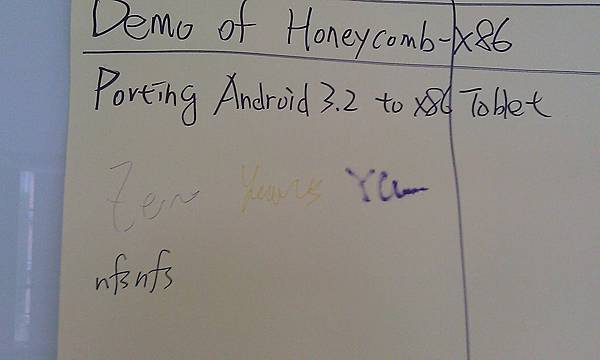 Demo of Honeycomb-x86
Porting Android 3.2 to x86 Tablet
Years
nfsnfs